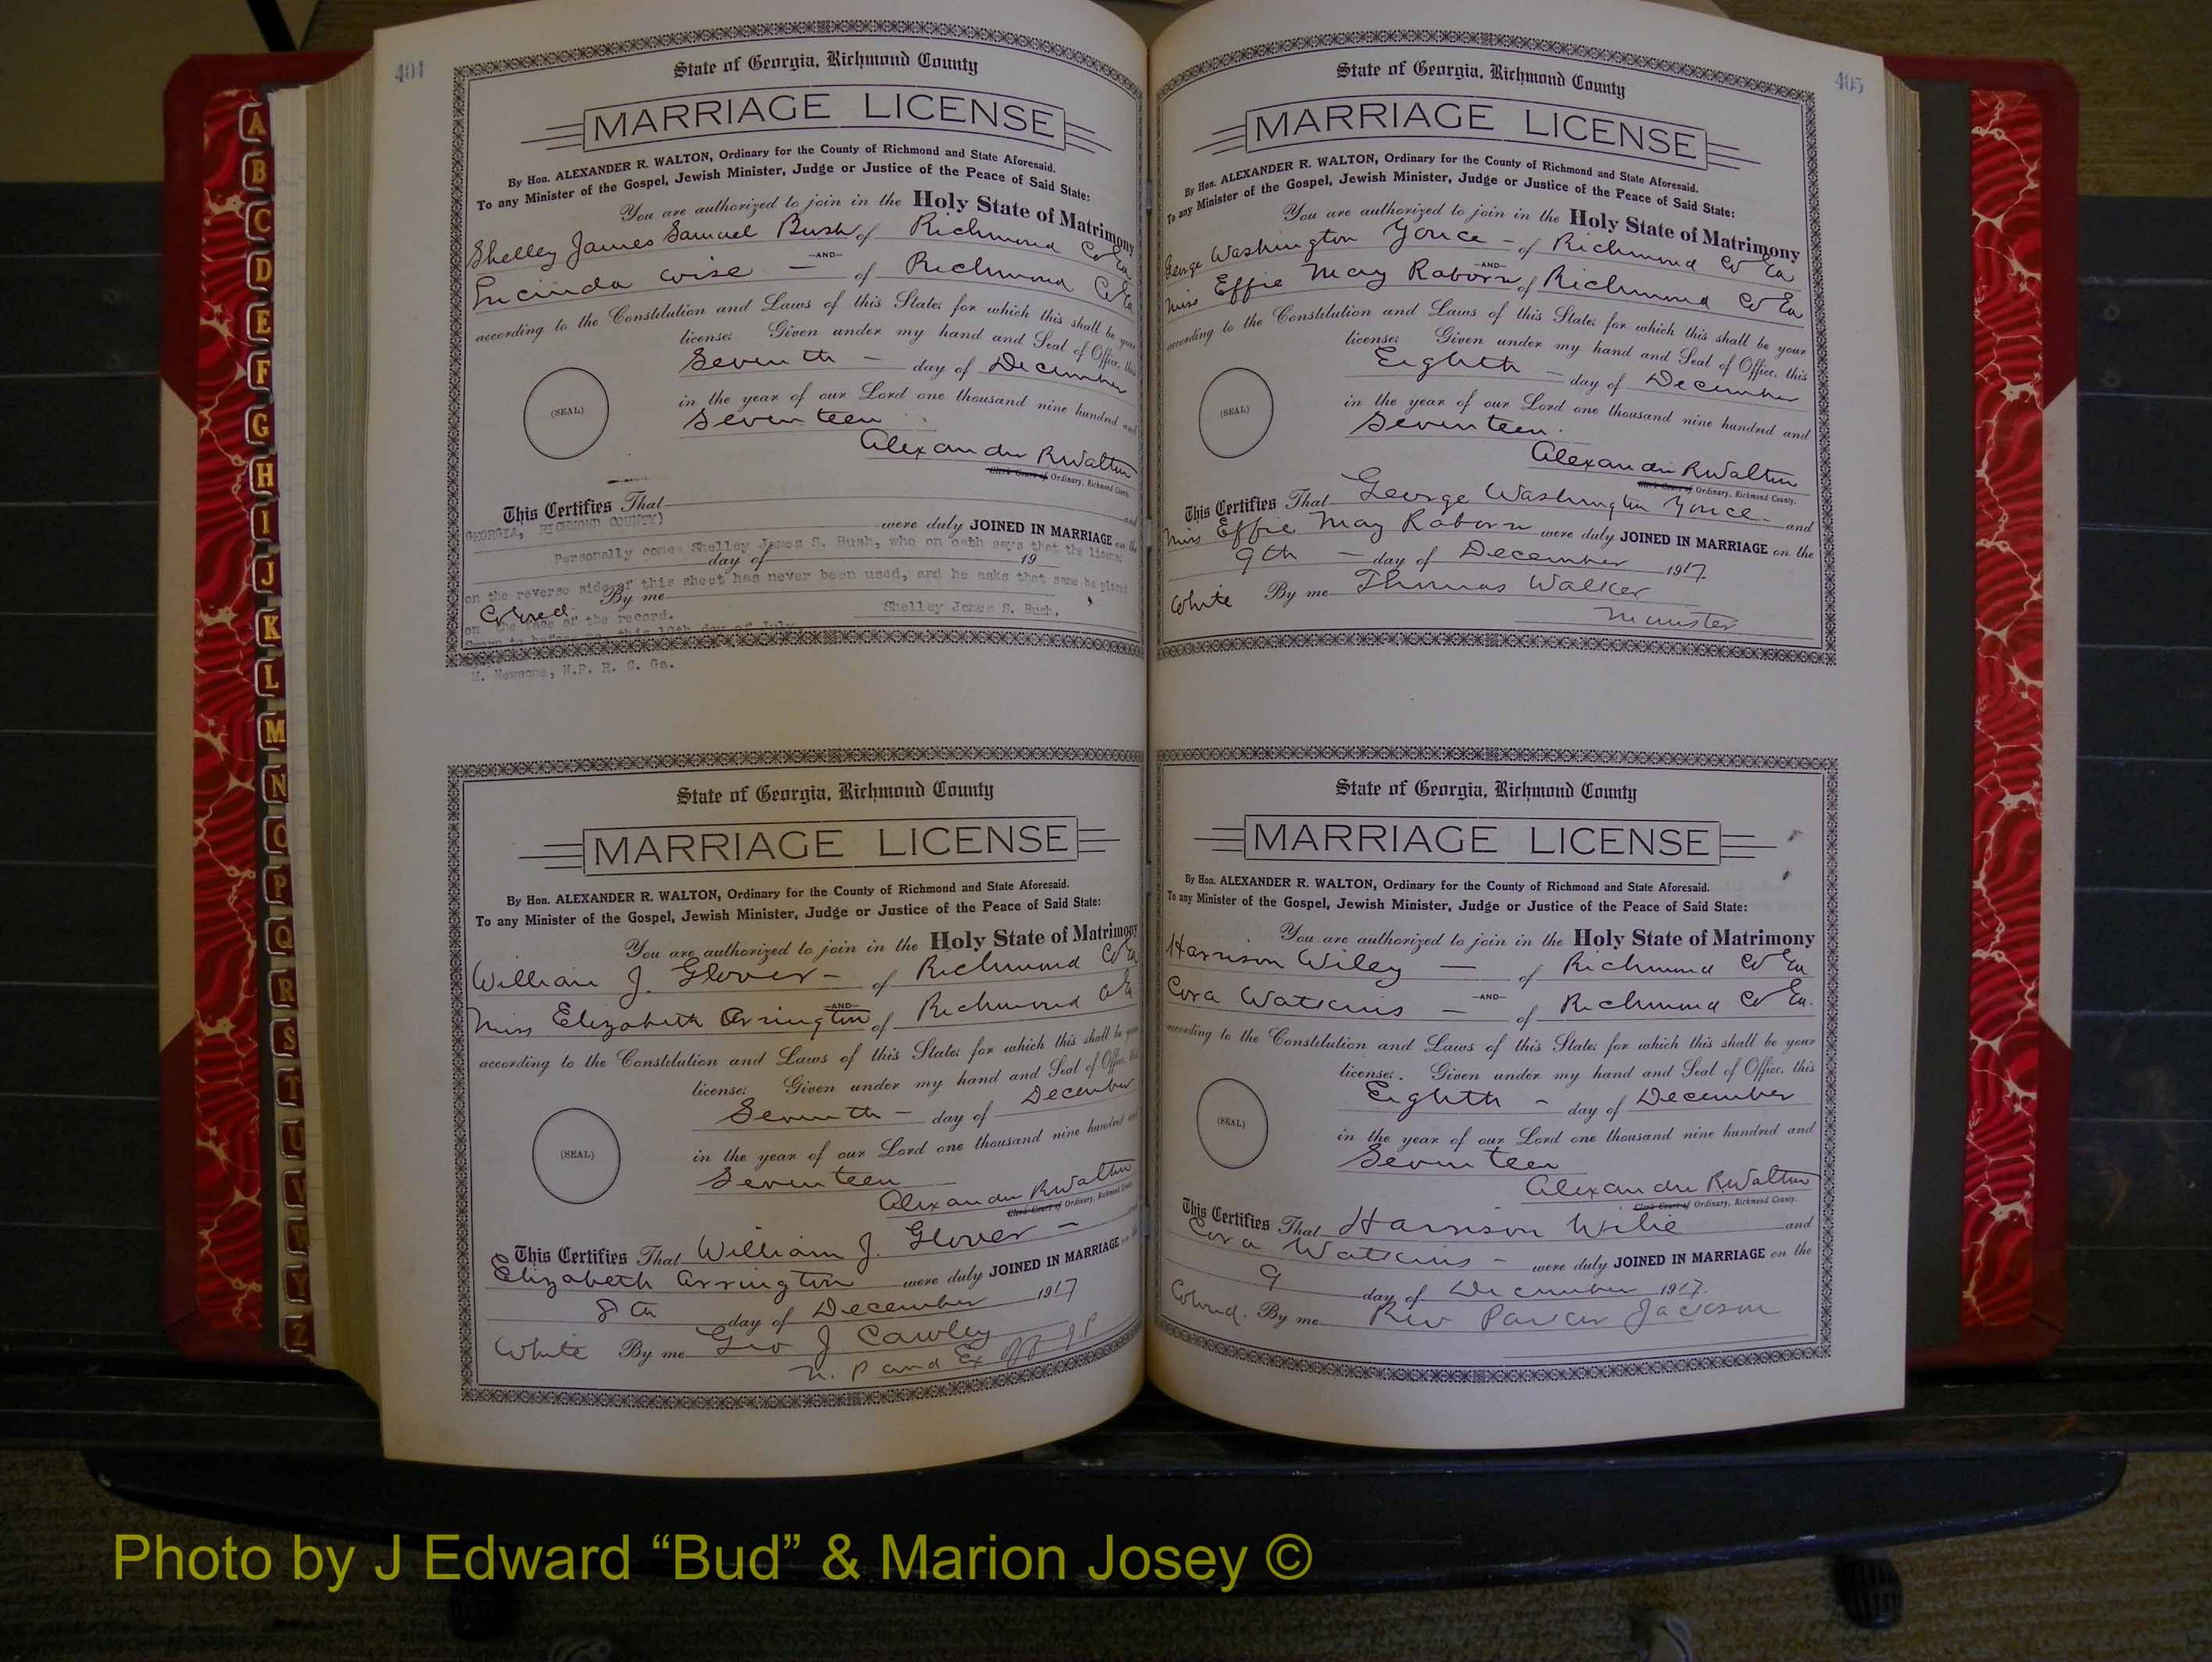 404
State of Georgia, Richmond County
MARRIAGE LICENSE
By Hon. ALEXANDER R. WALTON, Ordinary for the County of Richmond and State Aforesaid.
To any Minister of the Gospel, Jewish Minister, Judge or Justice of the Peace of Said State:
You are authorized to join in the Holy State of Matrimony
Shelley James Samuel Bush of Richmond Co Ga
—AND—
Lucinda Wise — of Richmond Co Ga
according to the Constitution and Laws of this State, for which this shall be your
license. Given under my hand and Seal of Office, this
Seventh — day of December
in the year of our Lord one thousand nine hundred and
Seventeen
(SEAL)
Alexander R Walton
Clerk Court of Ordinary, Richmond County.
This Certifies That and
GEORGIA, RICHMOND COUNTY)
were duly JOINED IN MARRIAGE on the
Personally comes Shelley James S. Bush, who on oath says that the license
day of 19
on the reverse side of this sheet has never been used, and he asks that same be placed
Colored By me
on the face of the record. Shelley James S. Bush.
Sworn to before me, this 10th day of July
M. Newsome, N.P. R. C. Ga.
State of Georgia, Richmond County
MARRIAGE LICENSE
By Hon. ALEXANDER R. WALTON, Ordinary for the County of Richmond and State Aforesaid.
To any Minister of the Gospel, Jewish Minister, Judge or Justice of the Peace of Said State:
You are authorized to join in the Holy State of Matrimony
William J. Glover — of Richmond Co Ga
—AND—
Miss Elizabeth Arrington of Richmond Co Ga
according to the Constitution and Laws of this State, for which this shall be your
license. Given under my hand and Seal of Office, this
Seventh — day of December
in the year of our Lord one thousand nine hundred and
Seventeen
(SEAL)
Alexander R Walton
Clerk Court of Ordinary, Richmond County.
This Certifies That William J. Glover —
Elizabeth Arrington were duly JOINED IN MARRIAGE on the
8th day of December 1917
White By me Geo J Cawley
N. P and Ex off J P
405
State of Georgia, Richmond County
MARRIAGE LICENSE
By Hon. ALEXANDER R. WALTON, Ordinary for the County of Richmond and State Aforesaid.
To any Minister of the Gospel, Jewish Minister, Judge or Justice of the Peace of Said State:
You are authorized to join in the Holy State of Matrimony
George Washington Youce — of Richmond Co Ga
—AND—
Miss Effie May Raborn of Richmond Co Ga
according to the Constitution and Laws of this State, for which this shall be your
license. Given under my hand and Seal of Office, this
Eighth — day of December
in the year of our Lord one thousand nine hundred and
Seventeen.
(SEAL)
Alexander R Walton
Clerk Court of Ordinary, Richmond County.
This Certifies That George Washington Youce — and
Miss Effie May Raborn were duly JOINED IN MARRIAGE on the
9th — day of December 1917.
White By me Thomas Walker
Minister
State of Georgia, Richmond County
MARRIAGE LICENSE
By Hon. ALEXANDER R. WALTON, Ordinary for the County of Richmond and State Aforesaid.
To any Minister of the Gospel, Jewish Minister, Judge or Justice of the Peace of Said State:
You are authorized to join in the Holy State of Matrimony
Harrison Wiley — of Richmond Co Ga
—AND—
Cora Watkins — of Richmond Co Ga.
according to the Constitution and Laws of this State, for which this shall be your
license. Given under my hand and Seal of Office, this
Eighth — day of December
in the year of our Lord one thousand nine hundred and
Seventeen
(SEAL)
Alexander R Walton
Clerk Court of Ordinary, Richmond County.
This Certifies That Harrison Wilie and
Cora Watkins — were duly JOINED IN MARRIAGE on the
9 day of December 1917.
Colored. By me Rev Parker Jackson
A
B
C
D
E
F
G
H
I
J
K
L
M
N
O
P
Q
R
S
T
U
V
W
Y
Z
Photo by J Edward “Bud” & Marion Josey ©